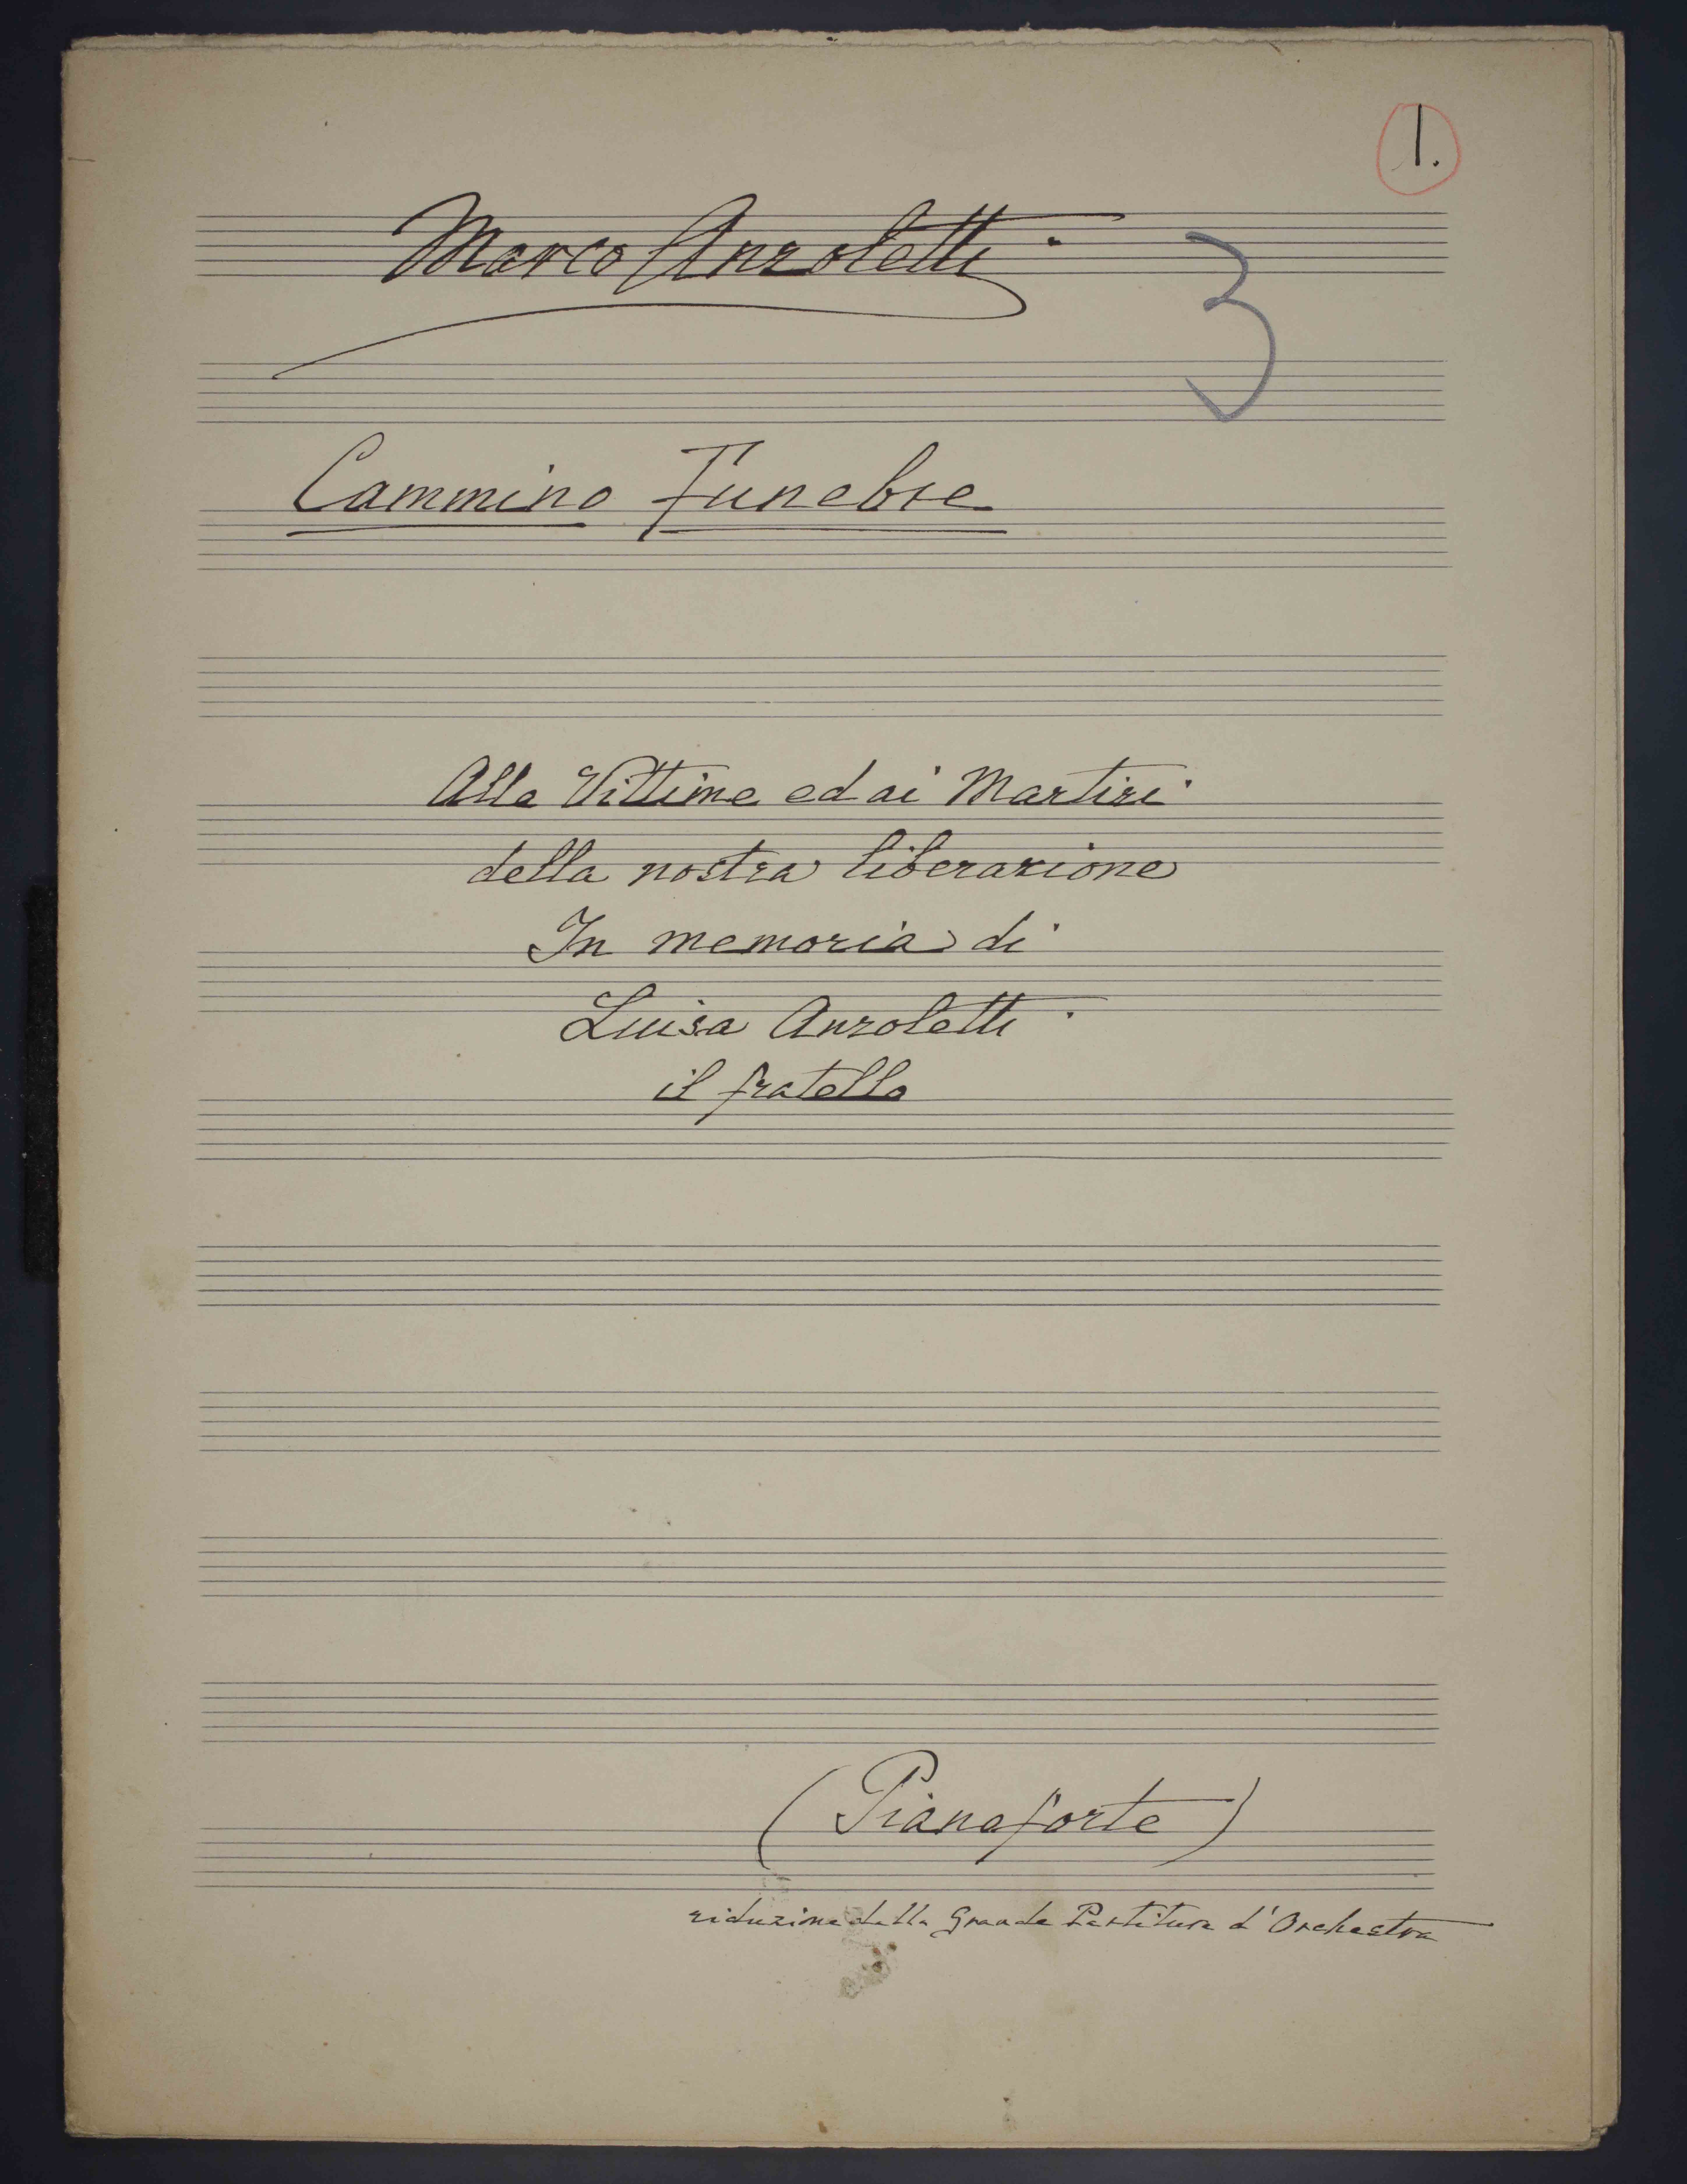 1.
Marco Anzoletti
3
Cammino Funebre
Alle Vittime ed ai Martiri
della nostra liberazione
In memoria di
Luisa Anzoletti
il fratello
(Pianoforte)
riduzione dalla Grande Partitura d'Orchestra